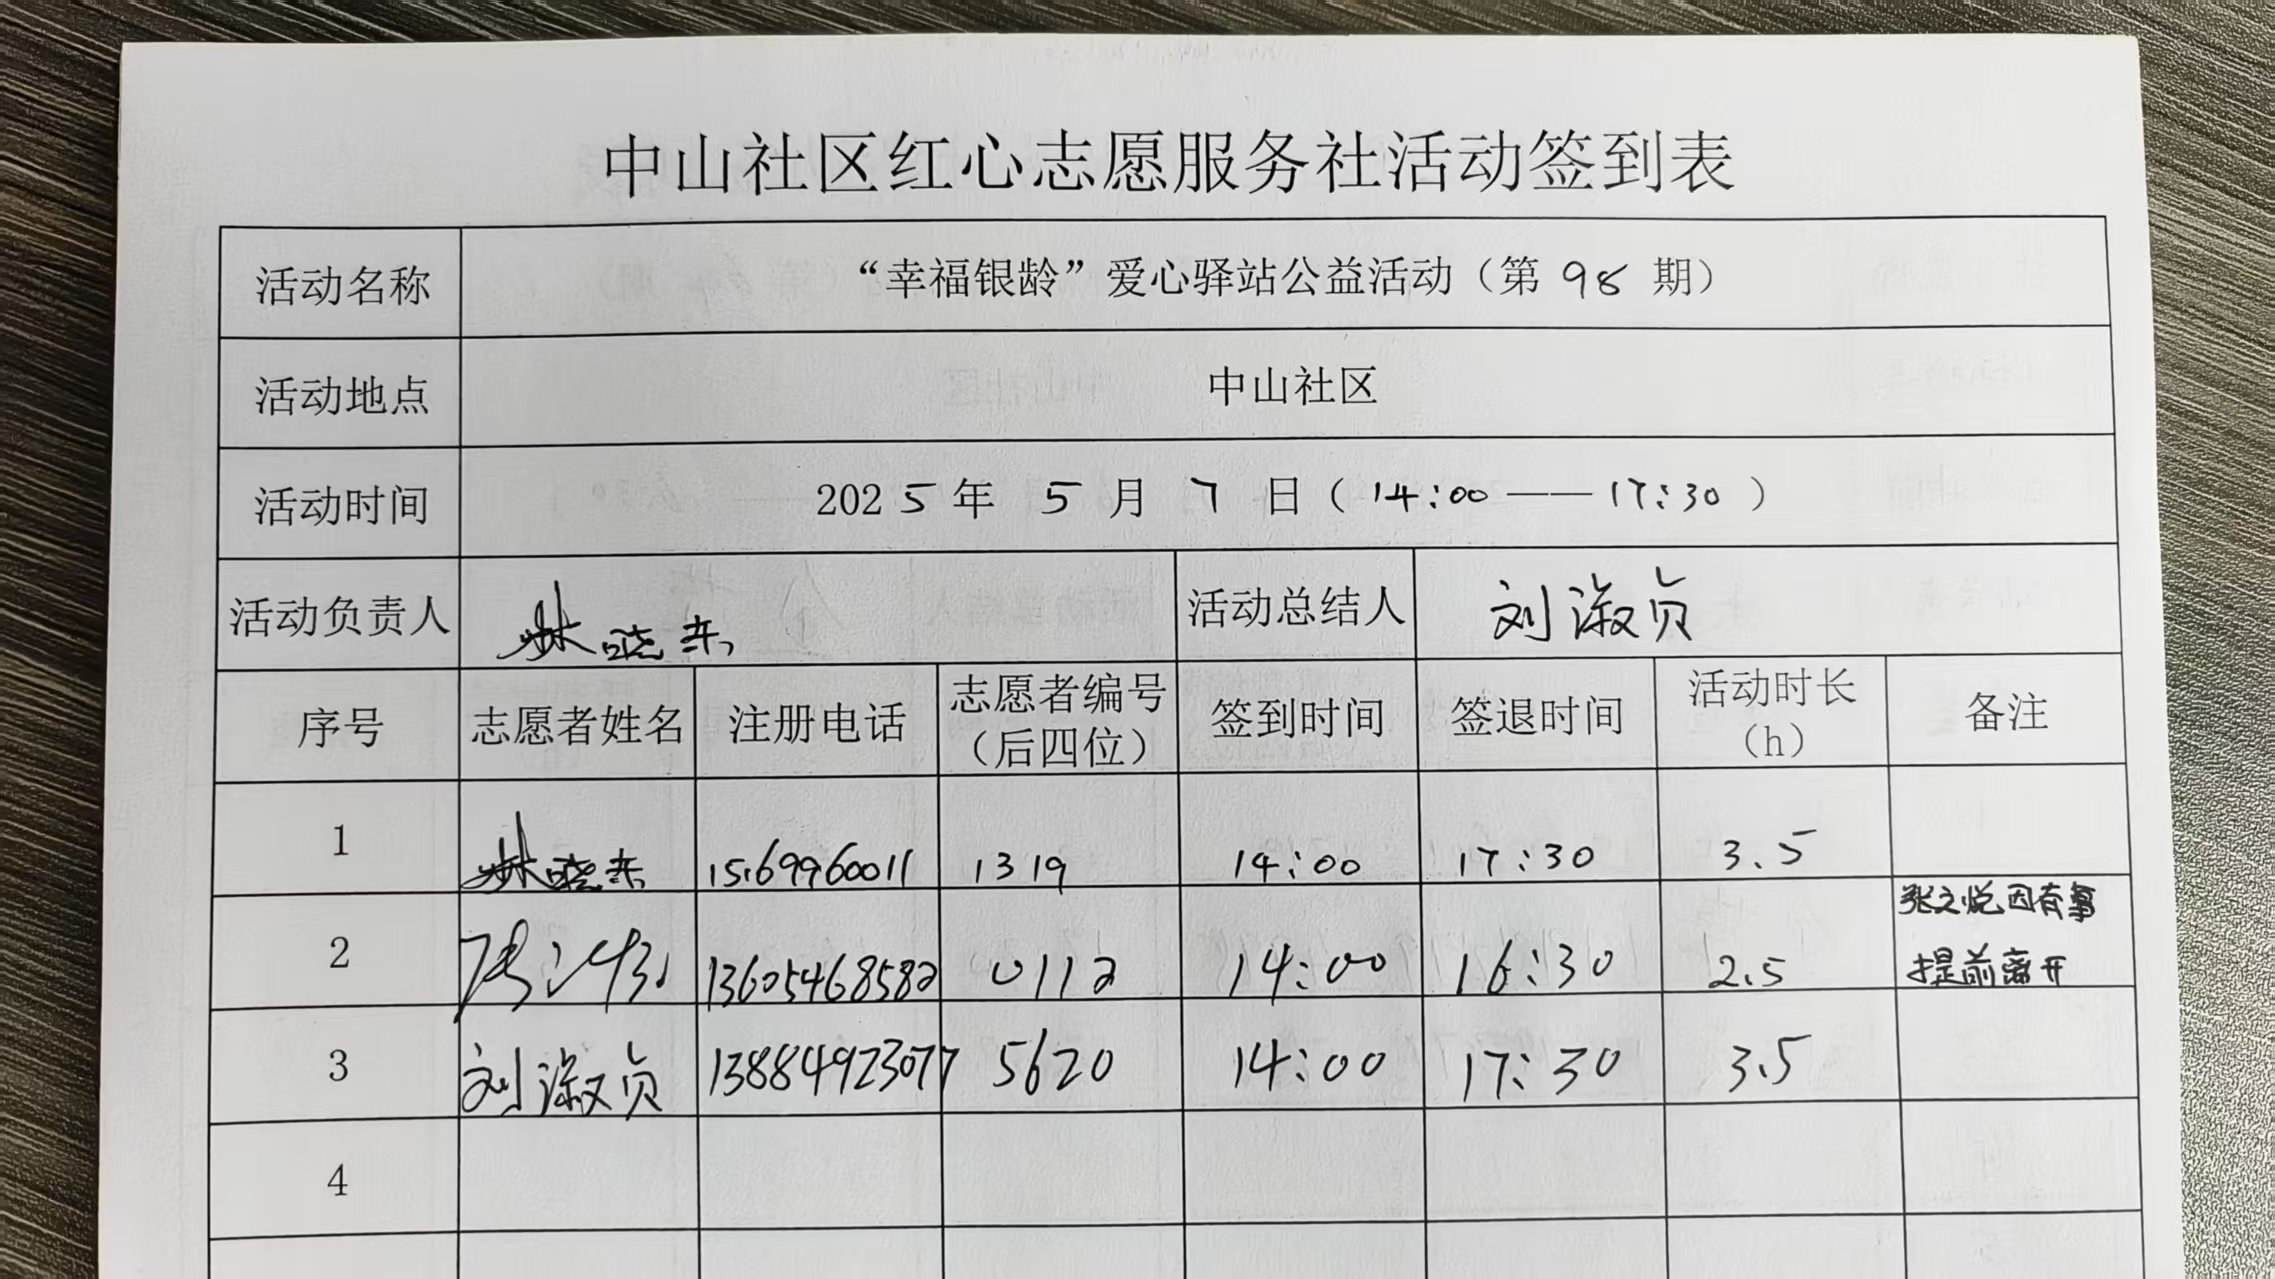 中山社区红心志愿服务社活动签到表
活动名称 “幸福银龄”爱心驿站公益活动（第 98 期）
活动地点 中山社区
活动时间 2025 年 5 月 7 日（14:00——17:30）
活动负责人 林晓东 活动总结人 刘淑贞
序号 志愿者姓名 注册电话 志愿者编号（后四位） 签到时间 签退时间 活动时长（h） 备注
1 林晓东 15169960011 1319 14:00 17:30 3.5
2 张文悦 13605468582 0112 14:00 16:30 2.5 张文悦因有事提前离开
3 刘淑贞 13884923077 5620 14:00 17:30 3.5
4